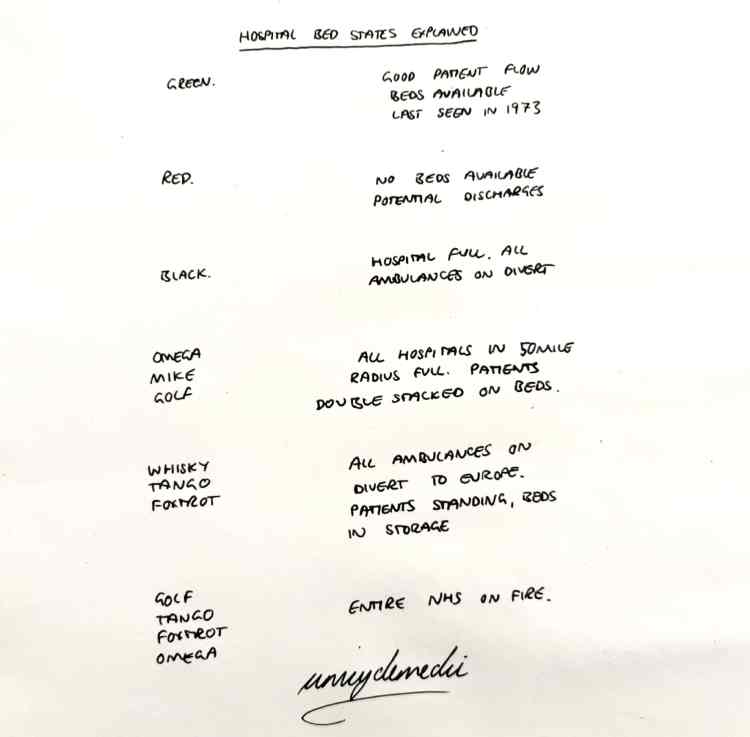 HOSPITAL BED STATES EXPLAINED
GREEN.
GOOD PATIENT FLOW
BEDS AVAILABLE
LAST SEEN IN 1973
RED.
NO BEDS AVAILABLE
POTENTIAL DISCHARGES
BLACK.
HOSPITAL FULL. ALL
AMBULANCES ON DIVERT
OMEGA
MIKE
GOLF
ALL HOSPITALS IN 50MILE
RADIUS FULL. PATIENTS
DOUBLE STACKED ON BEDS.
WHISKY
TANGO
FOXTROT
ALL AMBULANCES ON
DIVERT TO EUROPE.
PATIENTS STANDING, BEDS
IN STORAGE
GOLF
TANGO
FOXTROT
OMEGA
ENTIRE NHS ON FIRE.